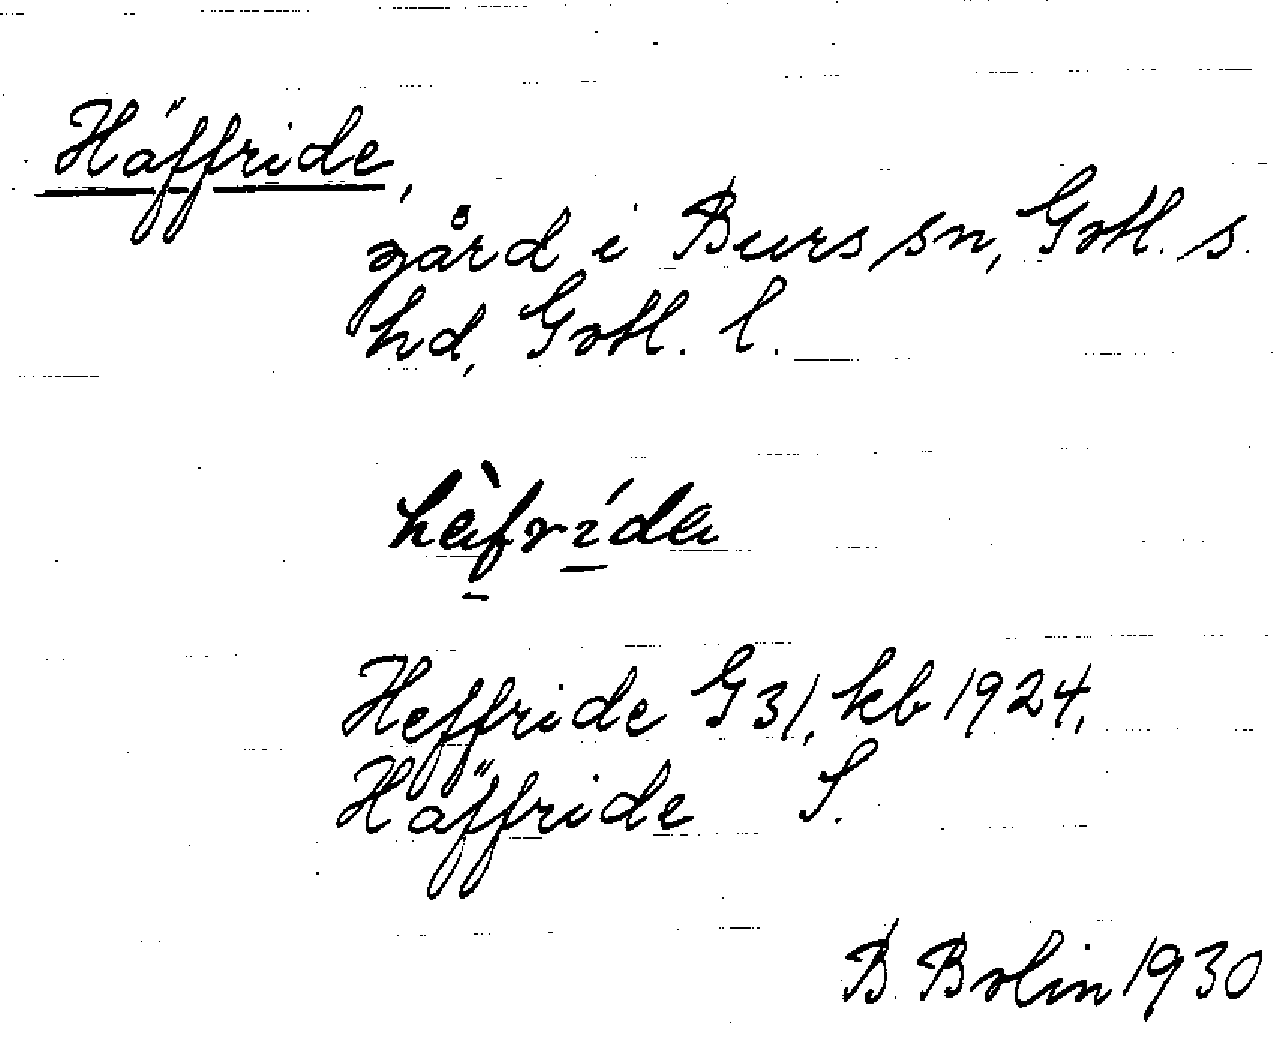 Häffride,
gård i Burs sn, Gotl. s.
hd, Gotl. l.
hèfrída
Heffride G 31, kb 1924,
Häffride S.
B. Bolin 1930